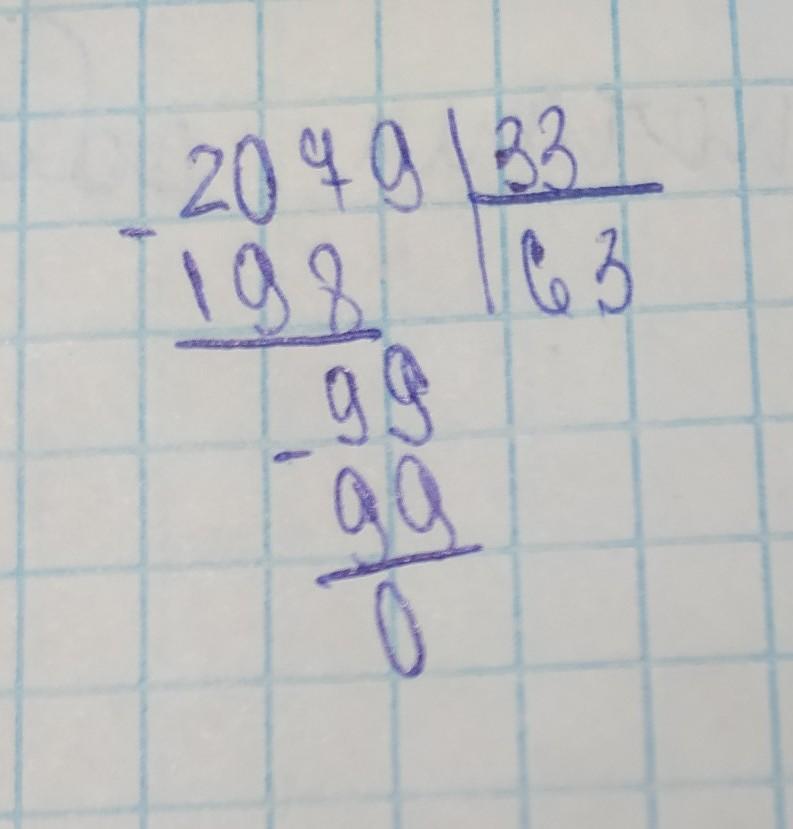 2079 | 33
- 198 | 63
99
- 99
0